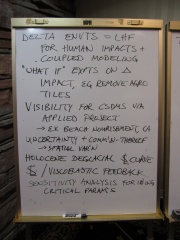 DELTA ENVTS = LHF
FOR HUMAN IMPACTS +
COUPLED MODELING
"WHAT IF" EXPTS ON Δ
IMPACT, EG REMOVE AGRO
TILES
VISIBILITY FOR CSDMS VIA
APPLIED PROJECT
→ EX BEACH NOURISHMENT,
UNCERTAINTY + COMMUN. THEREOF
→ SPATIAL VAR'N
HOLOCENE DEGLACIAL CURVE
/ VISCOELASTIC FEEDBACK
SENSITIVITY ANALYSIS FOR
CRITICAL PARAMS